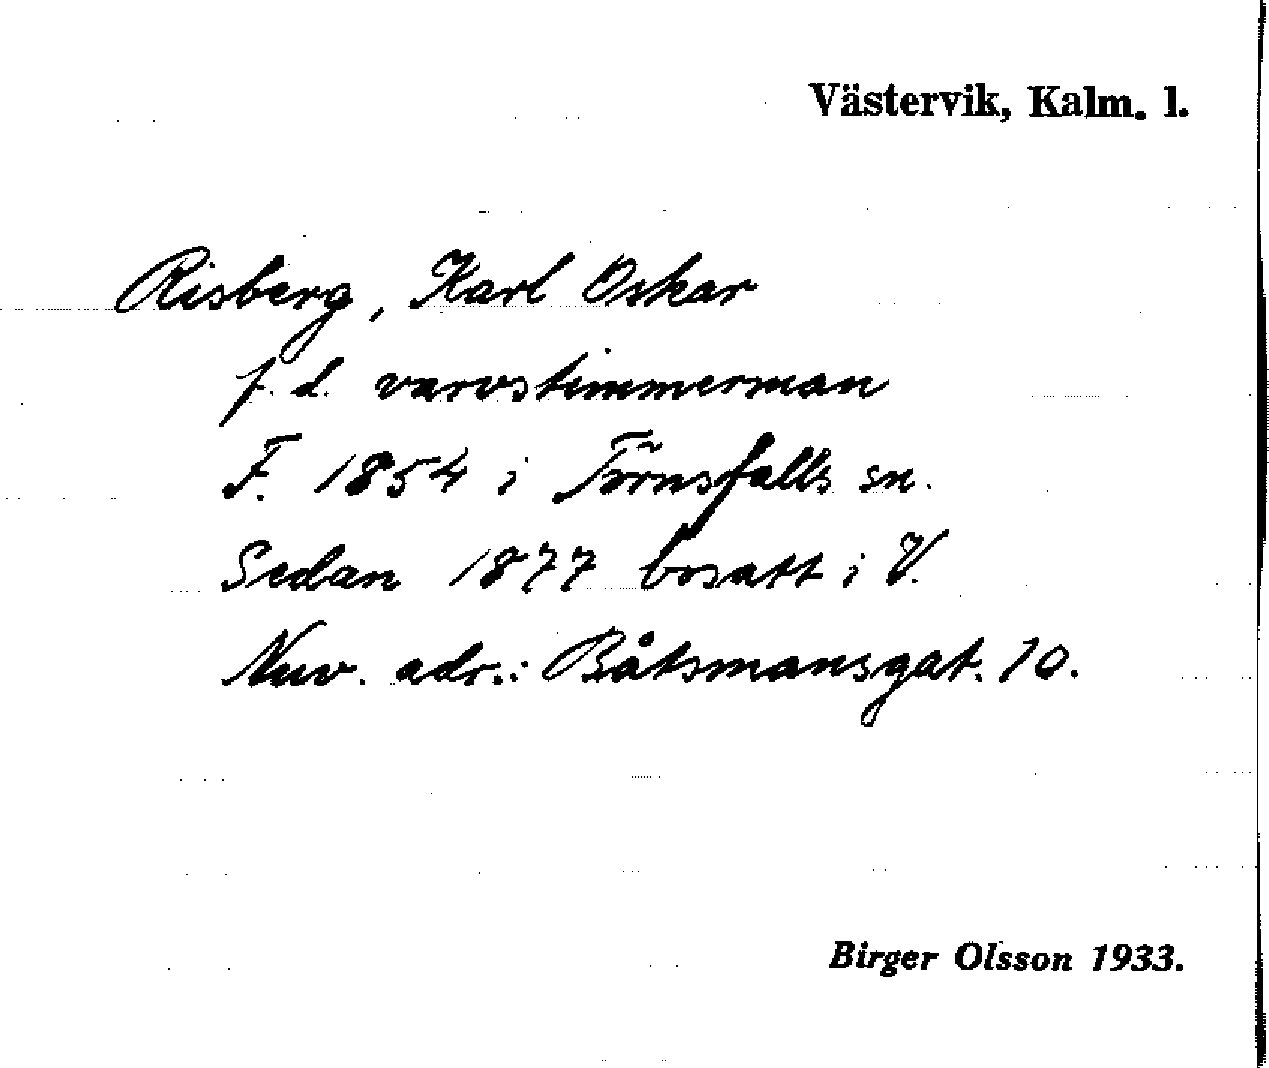 Västervik, Kalm. l.
Risberg, Karl Oskar
f. d. varvstimmerman
F. 1854 i Törnsfalls sn.
Sedan 1877 bosatt i V.
Nuv. adr.: Båtsmansgat. 10.
Birger Olsson 1933.